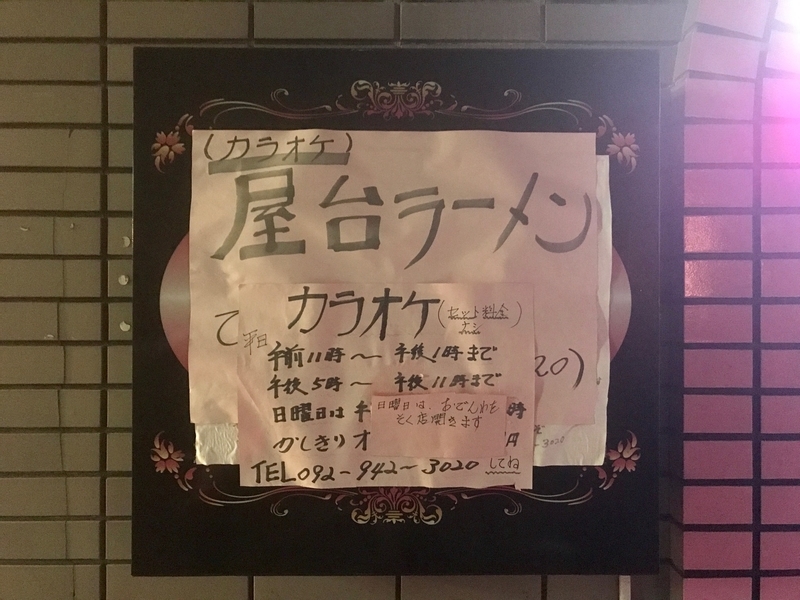 (カラオケ)
屋台ラーメン
カラオケ(セット料金ナシ)
て
平日
午前11時〜午後1時まで
午後5時〜午後11時まで
20)
日曜日は午 時
日曜日は、おでんわを
そく店開きます
かしきりオ 円
TEL092-942-3020 してね
3020